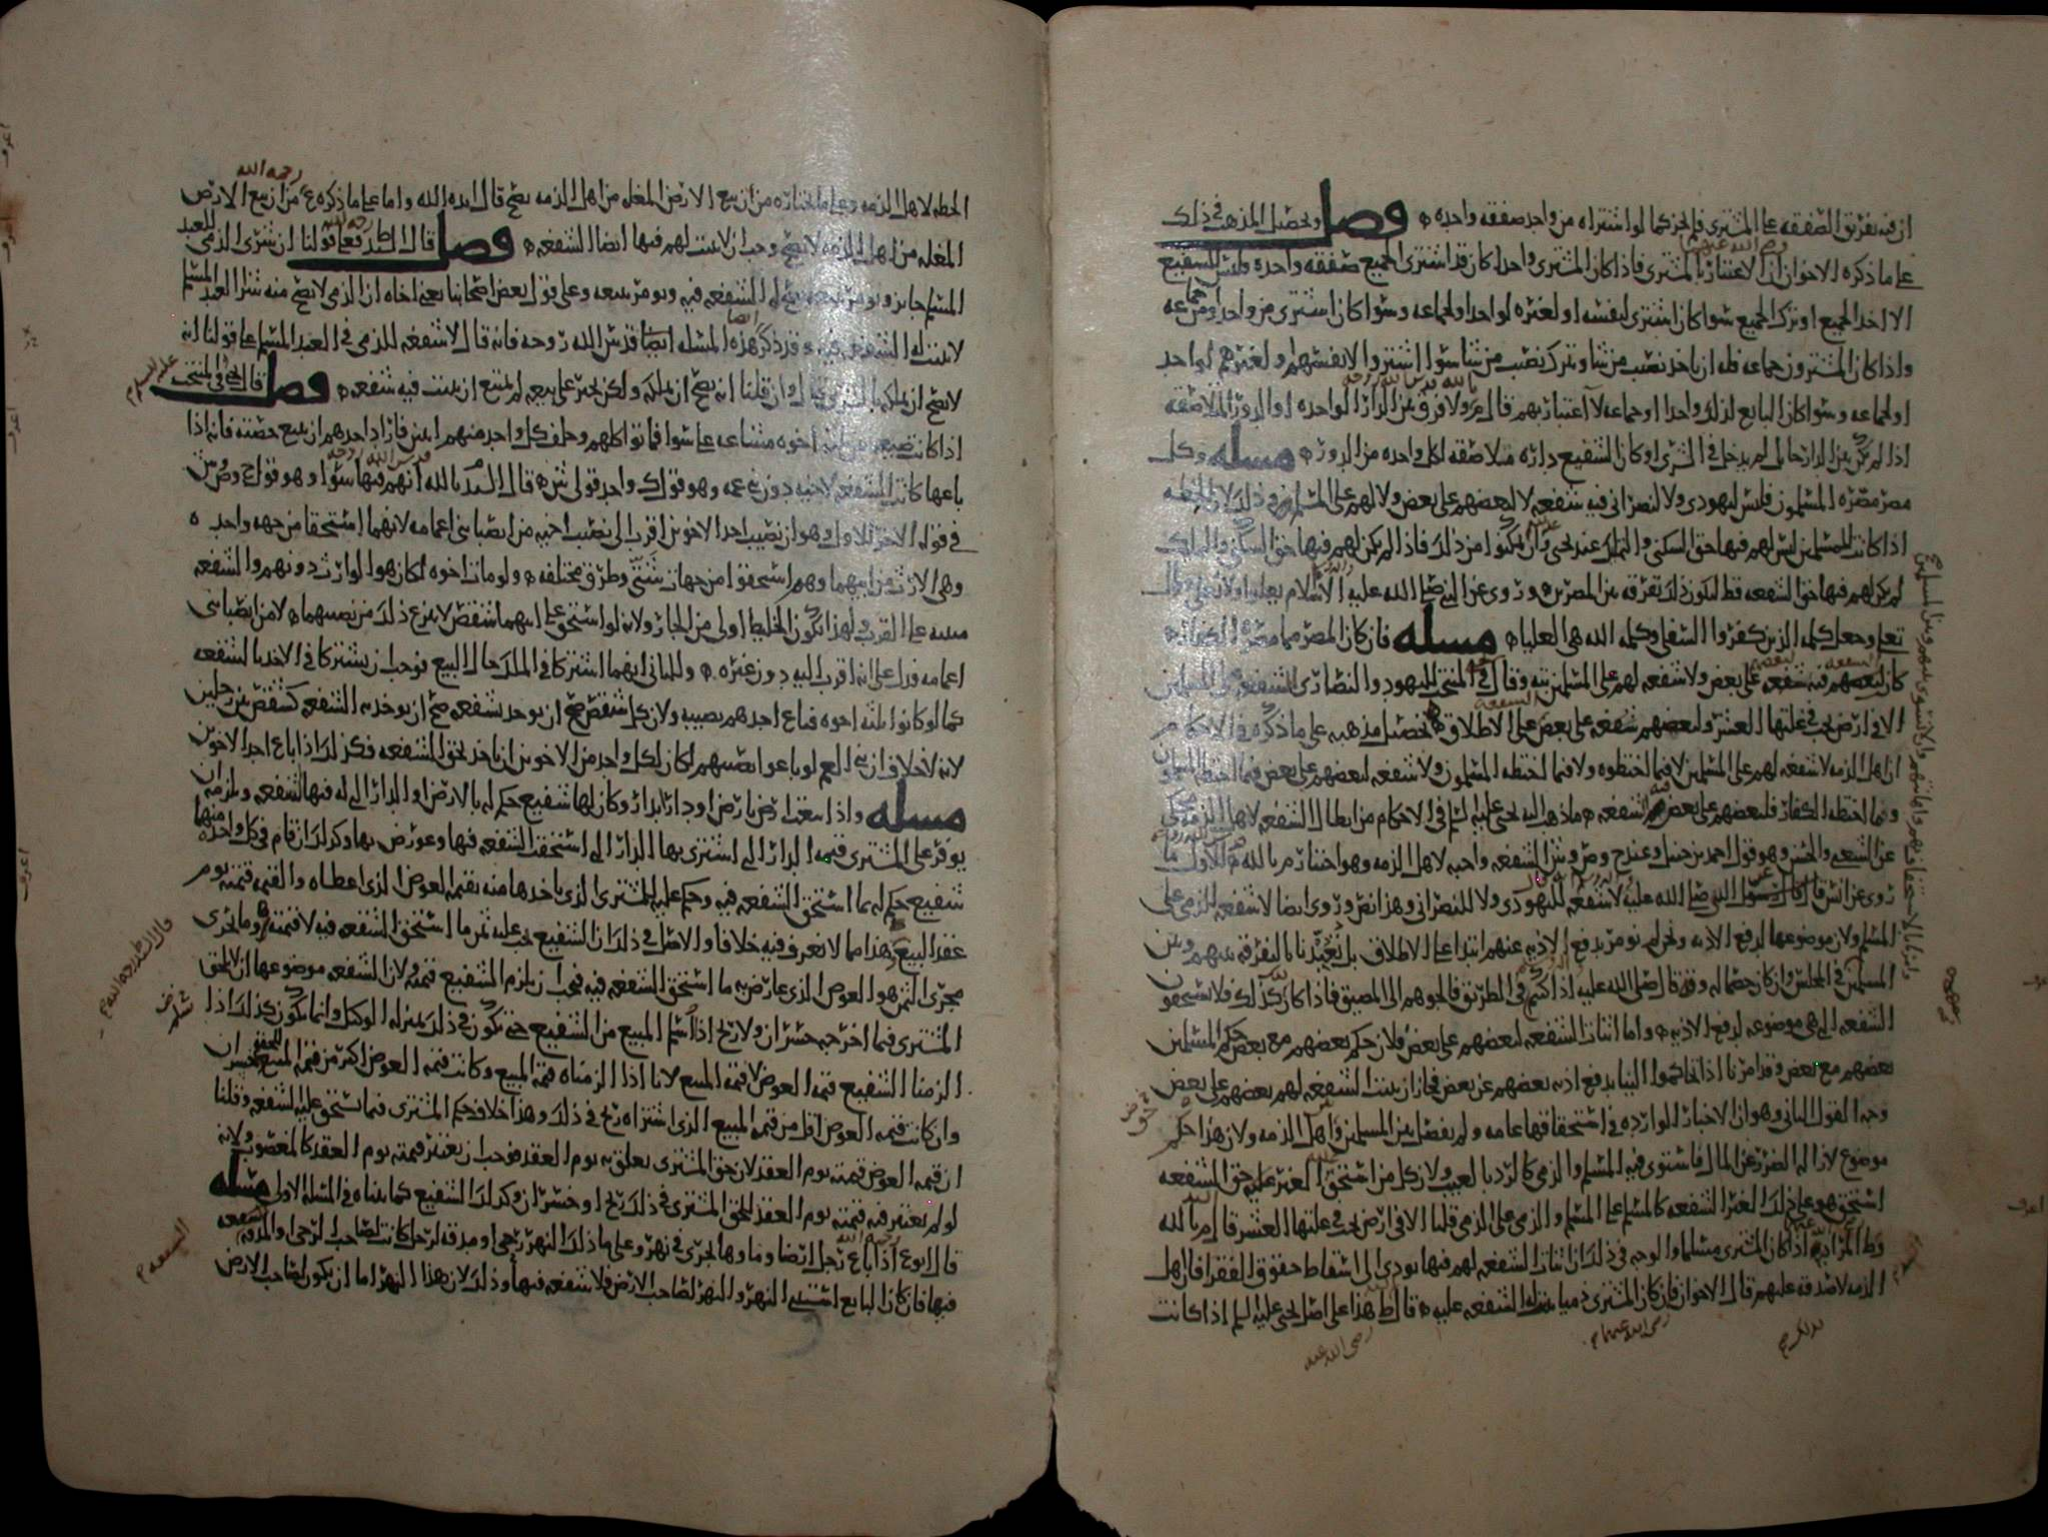 ان فيه تفريق الصفقه على المشتري فلم يجز كما لو اشتراه من واحد صفقه واحده فصل وتحصيل المذهب في ذلك
على ما ذكره الاخوان ان الاعتبار بالمشتري فاذا كان المشتري واحدا كان قد اشترى الجميع صفقه واحده وليس للشفيع
الا اخذ الجميع او ترك الجميع سوا كان اشترى لنفسه او لغيره لواحد او لجماعه وسوا كان اشترى من واحد او من جماعه
واذا كان المشترون جماعه فله ان ياخذ نصيب من شا ويترك نصيب من شا سوا اشتروا لانفسهم او لغيرهم لواحد
او لجماعه وسوا كان البايع لذلك واحدا او جماعه لا اعتبار بهم قال ولا فرق بين الدار الواحده او الدور المتلاصقه
اذا لم يكن بين الدار حايل لم يدخل في الشرى او كان الشفيع داره متلاصقه لكل واحده من الدور مسله وكل
مصر مصره المسلمون فليس ليهودي ولا لنصراني فيه شفعه لا لبعضهم على بعض ولا لهم على المسلمين وذلك لان الخطه
اذا كانت للمسلمين ليس لهم فيها حق السكنى والتملك عند يحيى بل ان يمكنوا من ذلك فاذا لم يكن لهم فيها حق السكنى والتملك
لم يكن لهم فيها حق الشفعه قط ليكون ذلك تفرقه بين المصرين وروي عن النبي صلى الله عليه الاسلام يعلو ولا يعلى وقال
تعلى وجعل كلمه الذين كفروا السفلى وكلمه الله هي العليا مسله فان كان المصر مما مصره الكفار
كان لبعضهم فيه شفعه على بعض ولا شفعه لهم على المسلمين فيه وقال في المنتخب لليهود والنصارى الشفعه على المسلمين
الا في ارض يجب في غلتها العشر ولبعضهم شفعه على بعض على الاطلاق تحصيل مذهبه على ما ذكره في الاحكام
ان اهل الذمه لا شفعه لهم على المسلمين لا فيما اختطوه ولا فيما اختطه المسلمون ولا شفعه لبعضهم على بعض فيما اختطه المسلمون
وفيما اختطه الكفار فلبعضهم على بعض الشفعه ما ذهب اليه يحيى عليه السلم في الاحكام من ابطال الشفعه لاهل الذمه محكي
عن الشعبي والحسن وهو قول احمد بن حنبل وعند الشفعه واجبه لاهل الذمه وهو اختيار م بالله وجه الاول ما
روي عن انس قال قال رسول الله صلى الله عليه لا شفعه لليهودي ولا للنصراني وهذا نص وروي ايضا لا شفعه للذمي على
المسلم ولان موضوعها لدفع الاذيه ونحن لم نؤمر بدفع الاذيه عنهم ابتدا على الاطلاق بل تعبدنا بالتفرقه بينهم وبين
المسلمين في المجلس وان كان خصما له وقد قال صلى الله عليه اذا لقيتم في الطريق فالجوهم الى المضيق فاذا كان كذلك فلا يستحقون
الشفعه التي هي موضوعه لدفع الاذيه واما اثبات الشفعه لبعضهم على بعض فلان حكم بعضهم مع بعض حكم المسلمين
بعضهم مع بعض وقد امرنا اذا تحاكموا الينا بدفع اذيه بعضهم عن بعض فجاز ان يثبت الشفعه لهم بعضهم على بعض
وجه القول الثاني وهو ان الاخبار الوارده في استحقاقها عامه ولم يفصل بين المسلمين واهل الذمه ولان هذا حكم
موضوع لازاله الضرر عن المال فاستوى فيه المسلم والذمي كالرد بالعيب ولان كل من استحق الغير عليه حق الشفعه
استحق هو على ذلك الغير الشفعه كالمسلم على المسلم والذمي على الذمي قلنا الا في ارض يجب في غلتها العشر قال م بالله
وط المراد به اذا كان المشتري مسلما والوجه في ذلك ان اثبات الشفعه لهم فيها يودي الى اسقاط حقوق الفقرا فان اهل
الذمه لا صدقه عليهم قال الاخوان فان كان المشتري ذميا يثبت له الشفعه عليه قال ط هذا على اصل يحيى عليه السلم اذا كانت
رضي الله عنهما
رضي الله عنه
رحمه الله
الخطه لاهل الذمه وعلى ما اختاره من ان بيع الارض المغله من اهل الذمه يصح قال ايده الله واما على ما ذكره ع من ان بيع الارض
المغله من اهل الذمه لا يصح وجب ان لا يثبت لهم فيها ايضا الشفعه فصل قال ط فعلى قولنا ان شرى الذمي للعبد
المسلم جايز ويومر ببيعه يثبت له الشفعه فيه ويومر ببيعه وعلى قول بعض اصحابنا يعني اخاه ان الذمي لا يصح منه شرا العبد المسلم
لا يثبت له الشفعه فيه وقد ذكر هذه المسله ايضا قدس الله روحه فانه قال لا شفعه للذمي في العبد المسلم على قولنا انه
لا يصح ان يملكه بالشرى قال وان قلنا انه يصح ان يملكه ولكن يجبر على بيعه لم يمتنع ان يثبت فيه شفعه فصل قال يحيى في المنتخب
عليه السلام
اذا كانت ضيعه بين ثلثه اخوه مشاعه على سوا فماتوا كلهم وخلف كل واحد منهم ابنين فاراد احدهم ان يبيع حصته فانه اذا
باعها كانت الشفعه لاخيه دون بني عمه وهو قول ك واحد قولي ش قال السيد م بالله انهم فيها سوا وهو قول ح وص وش
في قوله الاخر للاول وهو ان نصيب احد الاخوين اقرب الى نصيب اخيه من انصبا بني اعمامه لانهما استحقا من جهه واحده
وهي الارث من ابيهما وهم استحقوا من جهات شتى وطرق مختلفه ولو مات اخوه لكان هو الوارث دونهم والشفعه
مبنيه على القرب ولهذا يكون الخليط اولى من الجار ولانه لو استحق على ابيهما شقص لانتزع ذلك من نصيبهما لا من انصبا بني
اعمامه فدل على انه اقرب اليه دون غيره وللثاني انهما اشتركا في الملك حال البيع فوجب ان يشتركا في الاخذ بالشفعه
كما لو كانوا ثلثه اخوه فباع احدهم نصيبه ولان كل شقص صح ان يوخذ بشفعه صح ان يوخذ به الشفعه كشقص بين رجلين
لانه لا خلاف ان بني العم لو باعوا نصيبهم لكان لكل واحد من الاخوين ان ياخذ بحق الشفعه فكذلك اذا باع احد الاخوين
مسله واذا بيعت ارض بارض او دار بدار وكان لها شفيع حكم له بالارض او الدار التي له فيها الشفعه ويلزمه ان
يوفر على المشتري قيمه الدار التي اشترى بها الدار التي استحقت الشفعه فيها وعوض بها وكذلك ان قام في كل واحده منهما
شفيع حكم له بما استحق الشفعه فيه وحكم عليه للمشتري الذي ياخذها منه بقيمه العوض الذي اعطاه والقيمه قيمته يوم
عقد البيع وهذا مما لا نعرف فيه خلافا والاصل في ذلك ان الشفيع يجب عليه ثمن ما استحق الشفعه فيه لا قيمته وما يجري
مجرى الثمن هو العوض الذي عاوض به ما استحق الشفعه فيه فيجب ان يلزم الشفيع قيمته ولان الشفعه موضوعها ان لا يلحق
المشتري فيما اخرجه خسران ولا ربح اذا سلم المبيع من الشفيع حتى يكون في ذلك بمنزله الوكيل وانما يكون كذلك اذا
الزمنا الشفيع قيمه العوض لا قيمه المبيع لانا اذا الزمناه قيمه المبيع وكانت قيمه العوض اكثر من قيمه المبيع لحقه خسران
وان كانت قيمه العوض اقل من قيمه المبيع الذي اشتراه ربح في ذلك وهذا خلاف حكم المشتري فيما يستحق عليه الشفعه وقلنا
ان قيمه العوض قيمته يوم العقد لان حق المشتري تعلق به يوم العقد فوجب ان يعتبر قيمته يوم العقد كالمغصوب ولانه
لو لم يعتبر فيه قيمته يوم العقد للحق المشتري في ذلك ربح او خسران وكذلك الشفيع كما بيناه في المسله الاولى مسله
قال ابو ع اذا باع رجل ارضا وماوها يجري في نهر وعلى ما ذلك النهر رحى او مدقه لرجل كانت لصاحب الرحى والمدقه الشفعه
فيها فان كان البايع استثنى النهر والنهر لصاحب الارض فلا شفعه فيها وذلك لان هذا النهر اما ان يكون لصاحب الارض